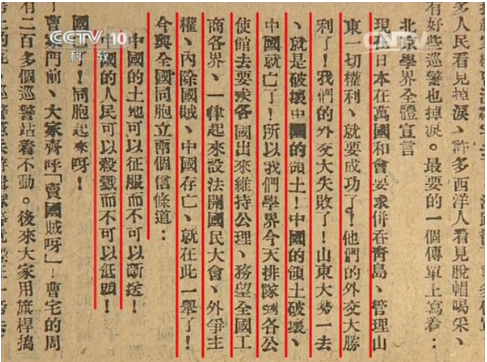 CCTV 10
科教
CNTV
多人民看見掉淚、許多西洋人看見脫帽喝采、
有好些巡警也掉淚。最要的一個傳單上寫着：
北京學界全體宣言
現在日本在萬國和會要求併吞青島、管理山
東一切權利、就要成功了！他們的外交大勝
利了！我們的外交大失敗了！山東大勢一去
、就是破壞中國的領土！中國的領土破壞、
中國就亡了！所以我們學界今天排隊到各公
使館去要求各國出來維持公理、務望全國工
商各界、一律起來設法開國民大會、外爭主
權、內除國賊、中國存亡、就在此一舉了！
今與全國同胞立兩個信條道：
中國的土地可以征服而不可以斷送！
中國的人民可以殺戮而不可以低頭！
國！同胞起來呀！
了曹家門前、大家齊呼「賣國賊呀」！曹宅的周
有二百多個巡警站着不動。後來大家用旗桿搗